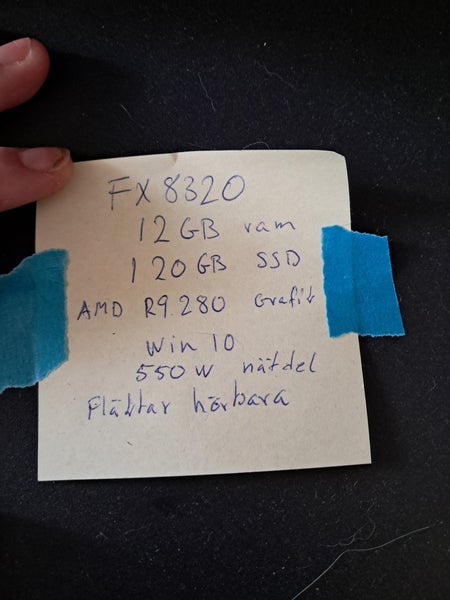 FX 8320
12 GB ram
120 GB SSD
AMD R9 280 Grafik
Win 10
550 W nätdel
Fläktar hörbara